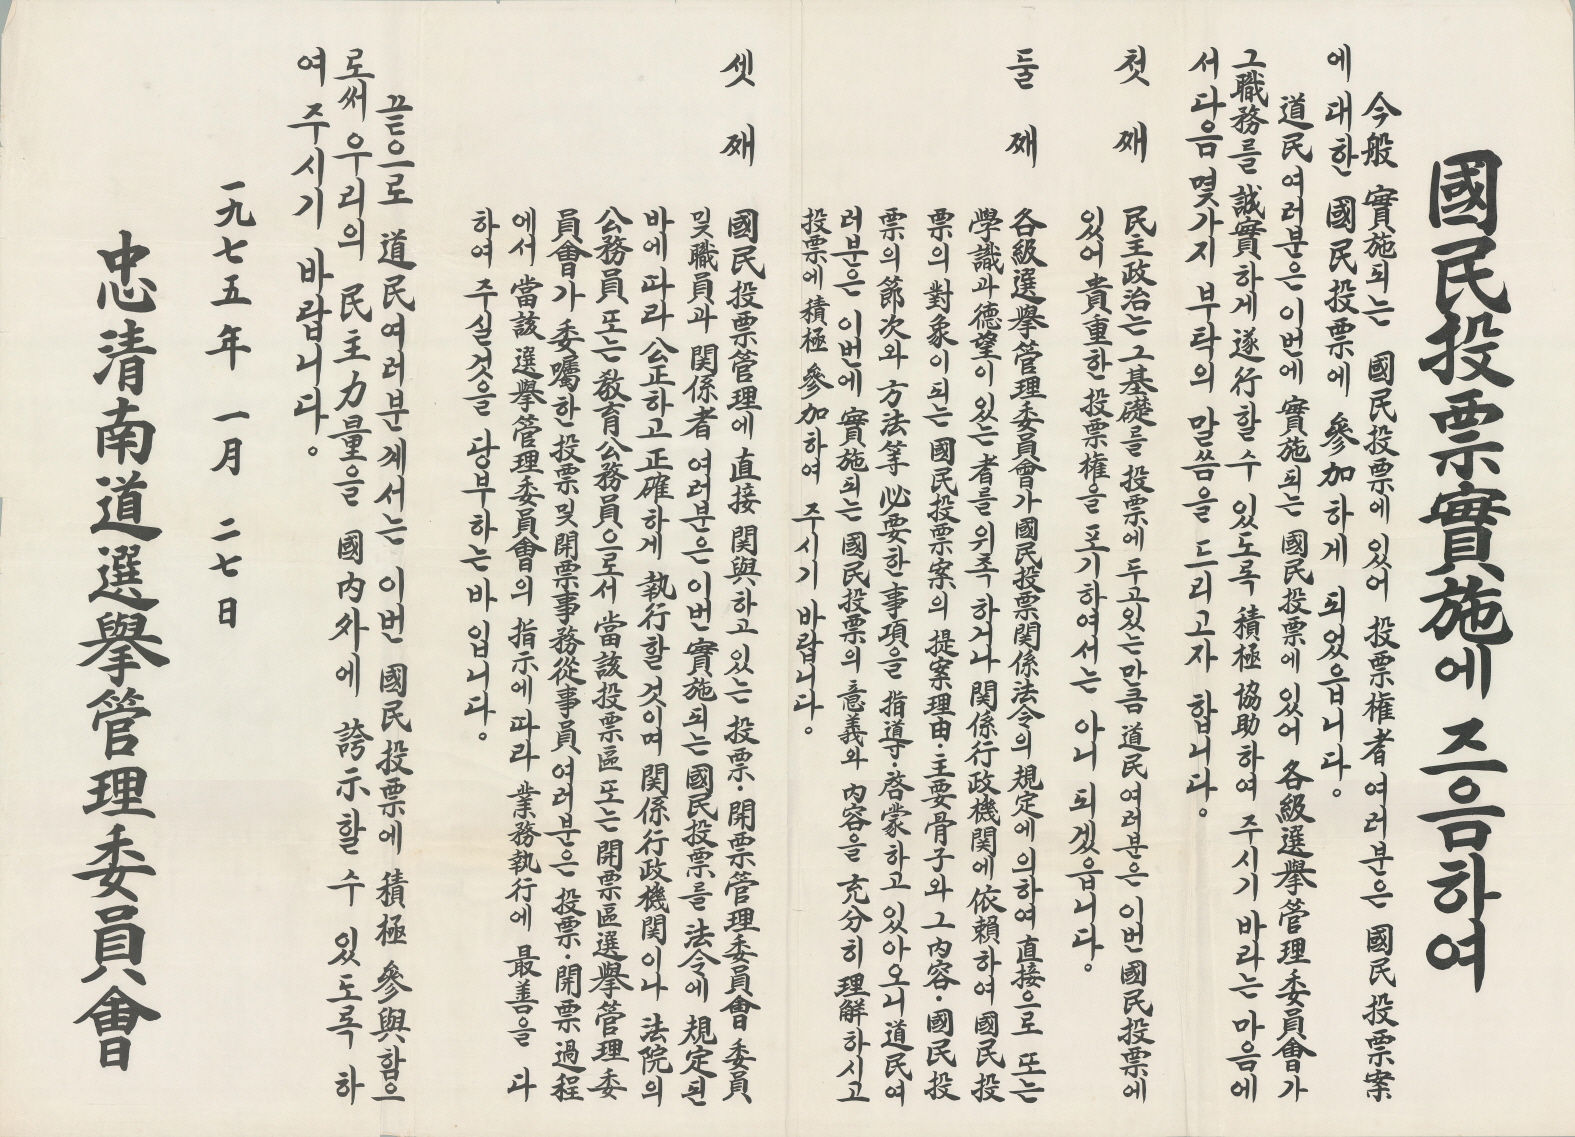 國民投票實施에 즈음하여
今般 實施되는 國民投票에 있어 投票權者 여러분은 國民投票案
에 대한 國民投票에 參加하게 되었읍니다。
道民 여러분은 이번에 實施되는 國民投票에 있어 各級選擧管理委員會가
그 職務를 誠實하게 遂行할 수 있도록 積極 協助하여 주시기 바라는 마음에
서 다음 몇가지 부탁의 말씀을 드리고자 합니다。
첫째 民主政治는 그 基礎를 投票에 두고있는 만큼 道民 여러분은 이번 國民投票에
있어 貴重한 投票權을 포기하여서는 아니 되겠읍니다。
둘째 各級選擧管理委員會가 國民投票関係法令의 規定에 의하여 直接으로 또는
學識과 德望이 있는 者를 위촉하거나 関係行政機関에 依賴하여 國民投
票의 對象이 되는 國民投票案의 提案理由·主要骨子와 그 內容·國民投
票의 節次와 方法等 必要한 事項을 指導·啓蒙하고 있아오니 道民여
러분은 이번에 實施되는 國民投票의 意義와 內容을 充分히 理解하시고
投票에 積極 參加하여 주시기 바랍니다。
셋째 國民投票管理에 直接 関與하고 있는 投票·開票管理委員會 委員
및 職員과 関係者 여러분은 이번 實施되는 國民投票를 法令에 規定된
바에 따라 公正하고 正確하게 執行할 것이며 関係行政機関이나 法院의
公務員 또는 敎育公務員으로서 當該投票區 또는 開票區選擧管理委
員會가 委囑한 投票 및 開票事務從事員 여러분은 投票·開票 過程
에서 當該 選擧管理委員會의 指示에 따라 業務執行에 最善을 다
하여 주실것을 당부하는 바입니다。
끝으로 道民여러분게서는 이번 國民投票에 積極 參與함으
로써 우리의 民主力量을 國內外에 誇示할 수 있도록 하
여 주시기 바랍니다。
一九七五年 一月 二七日
忠淸南道選擧管理委員會